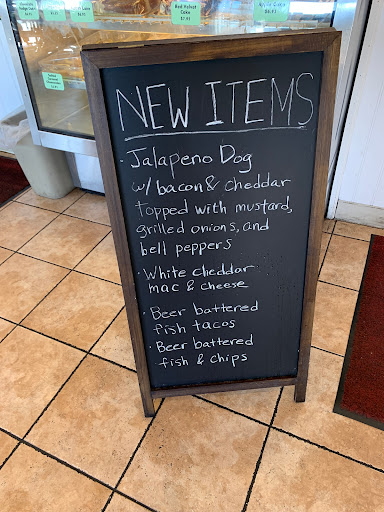 Red Velvet
Cake
NEW ITEMS
· Jalapeno Dog
w/ bacon & cheddar
topped with mustard,
grilled onions, and
bell peppers
· White cheddar
mac & cheese
· Beer battered
fish tacos
· Beer battered
fish & chips